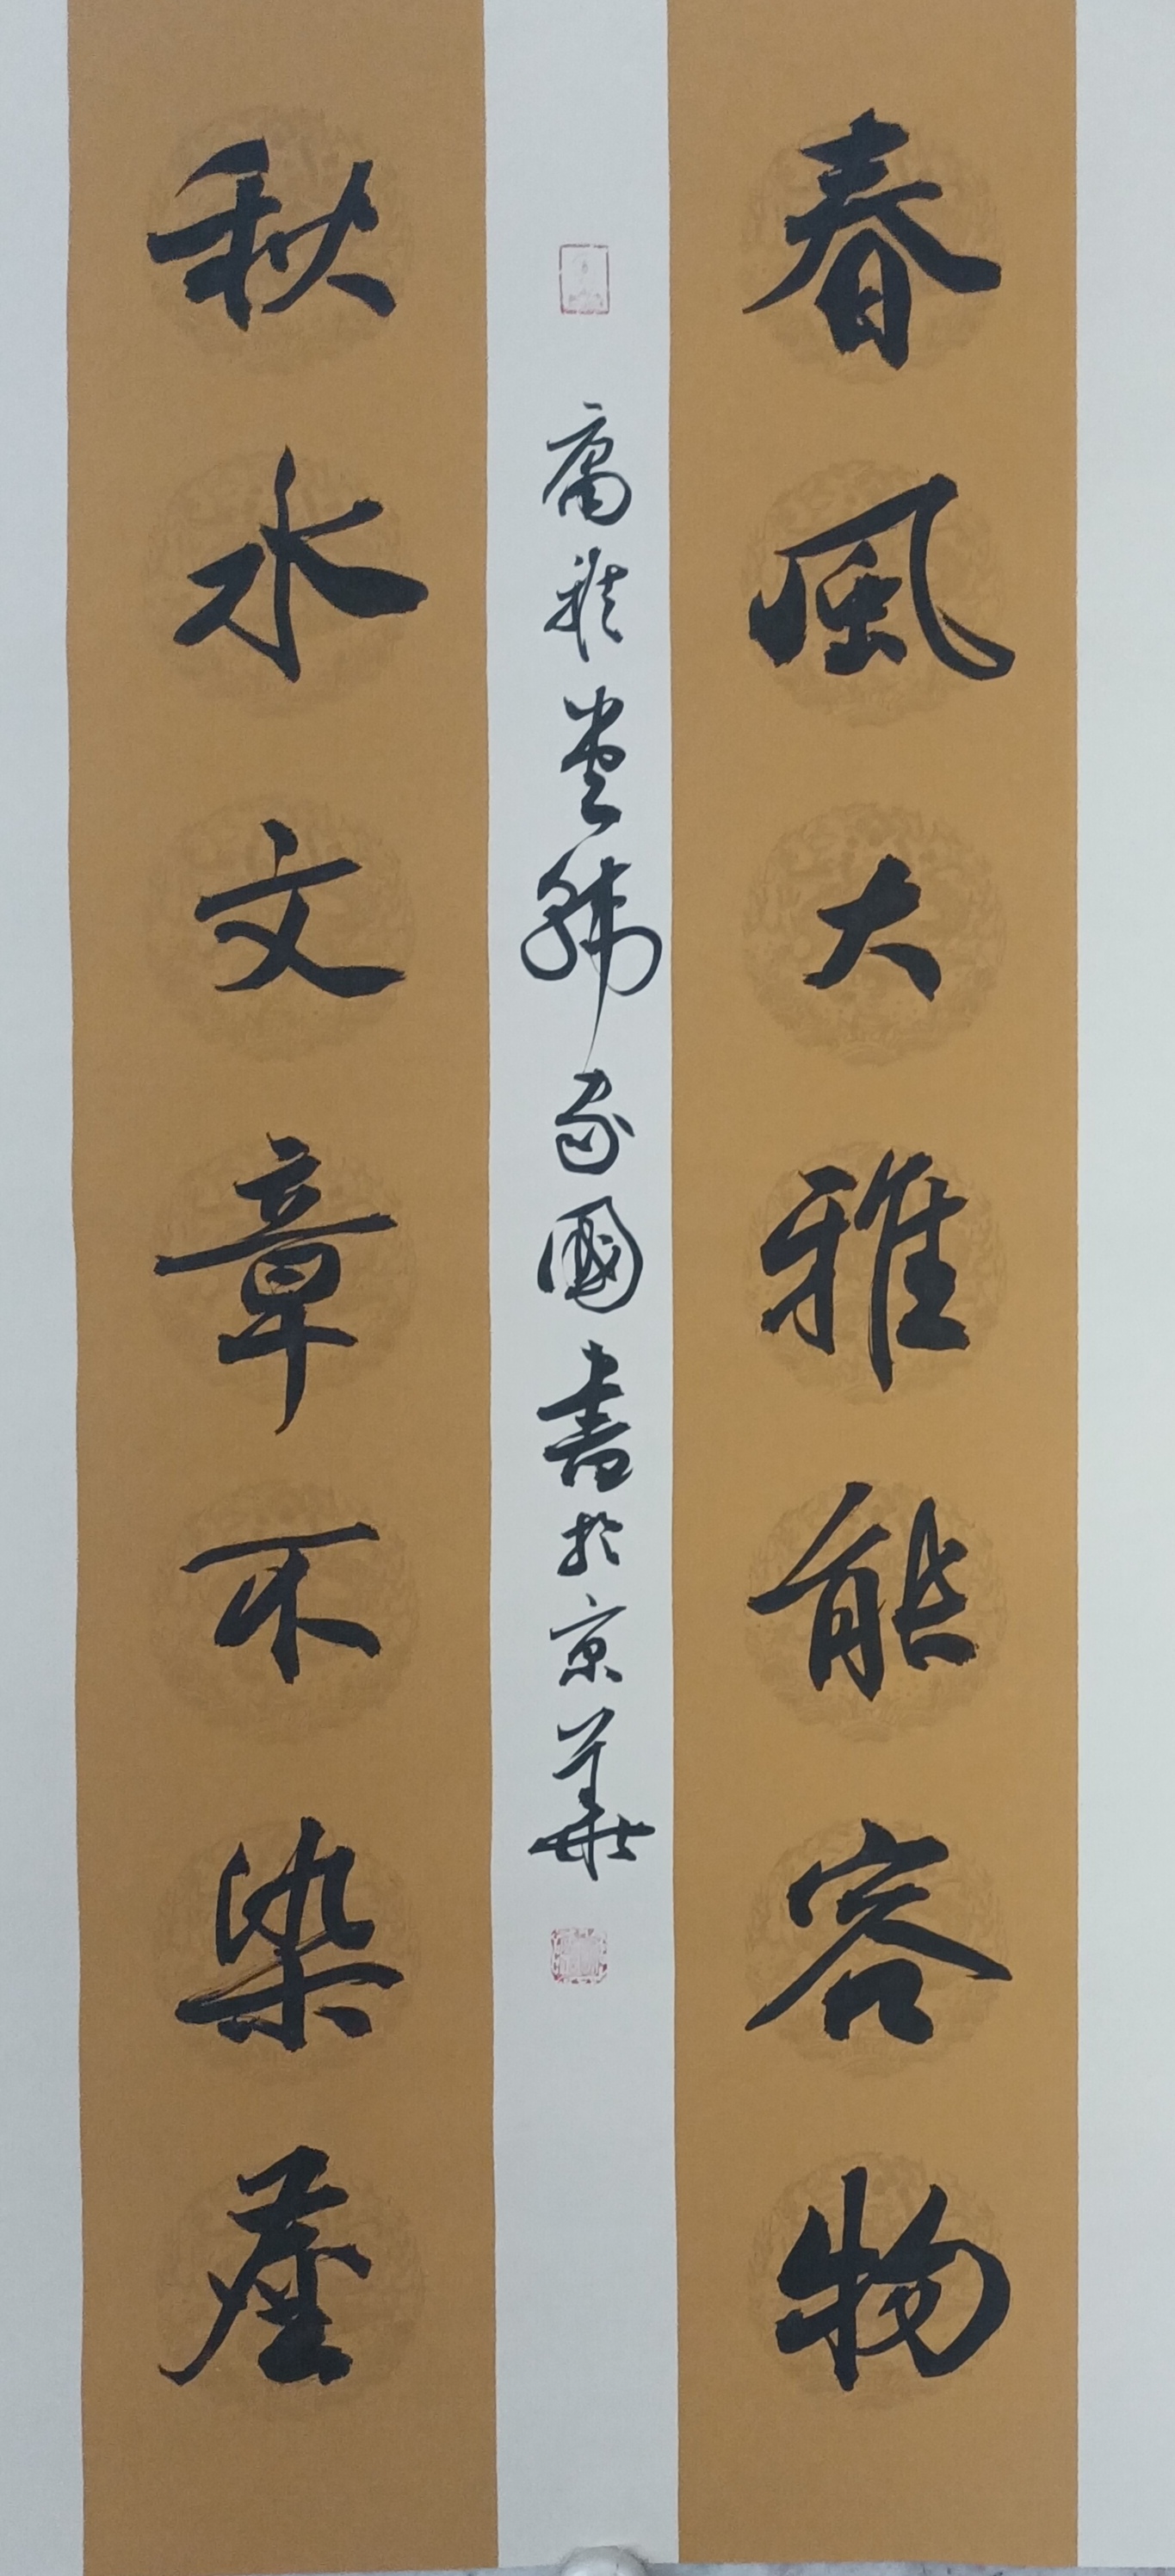 春風大雅能容物
家國書於京華
秋水文章不染塵